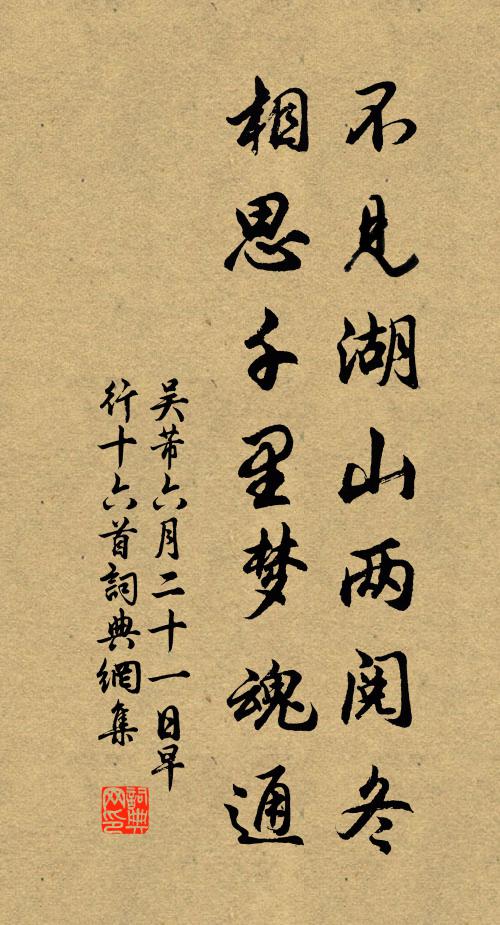 不見湖山两閱冬
相思千里梦魂通
吴芾六月二十一日早
行十六首詞典網集
詞典网印